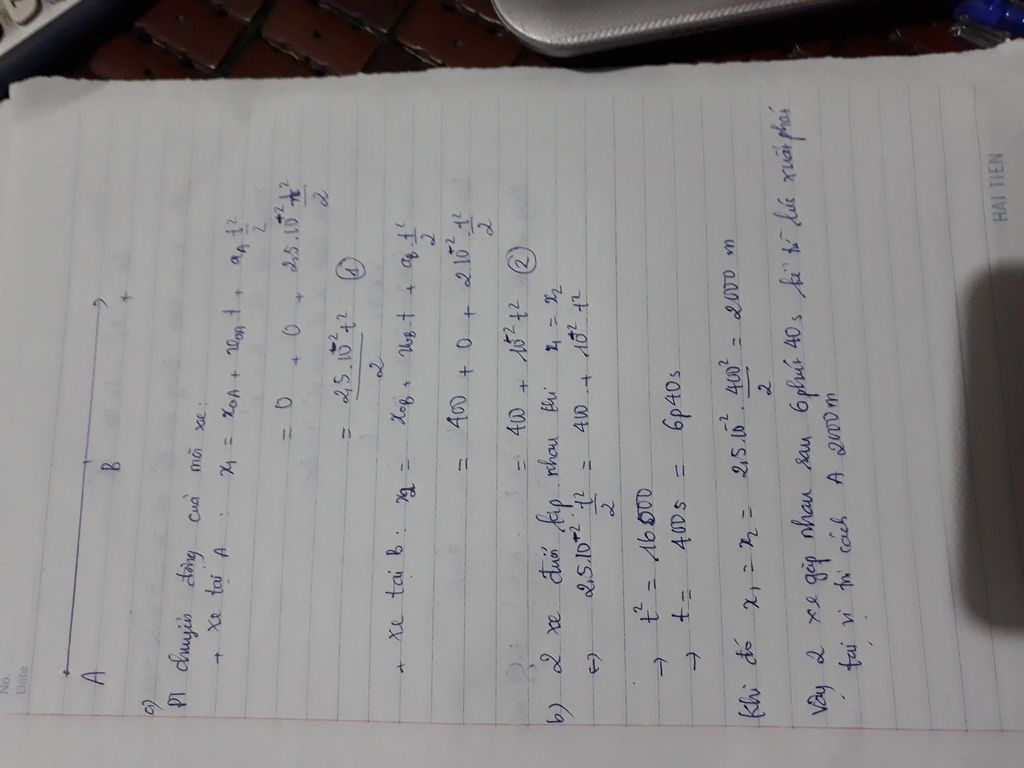 No.
Date
A B +
a)
Pt chuyển động của mỗi xe:
+ xe tại A : x₁ = x₀A + v₀A t + aA t²/2
= 0 + 0 + 2,5.10⁻² t²/2
= 2,5.10⁻² t²/2 (1)
+ xe tại B : x₂ = x₀B + v₀B t + aB t²/2
= 400 + 0 + 2.10⁻² t²/2
= 400 + 10⁻² t² (2)
b) 2 xe đuổi kịp nhau thì x₁ = x₂
↔ 2,5.10⁻² t²/2 = 400 + 10⁻² t²
→ t² = 160000
→ t = 400s = 6p40s
Khi đó x₁ = x₂ = 2,5.10⁻² . 400²/2 = 2000 m
Vậy 2 xe gặp nhau sau 6 phút 40s kể từ lúc xuất phát
tại vị trí cách A 2000m
HẢI TIẾN